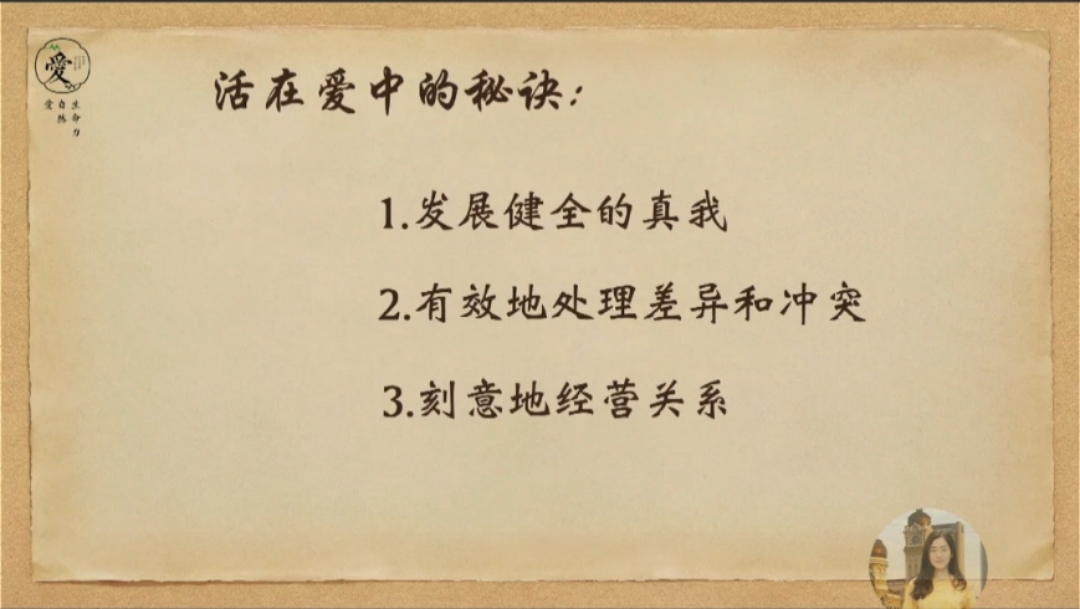 爱
活在爱中的秘诀：
1.发展健全的真我
2.有效地处理差异和冲突
3.刻意地经营关系